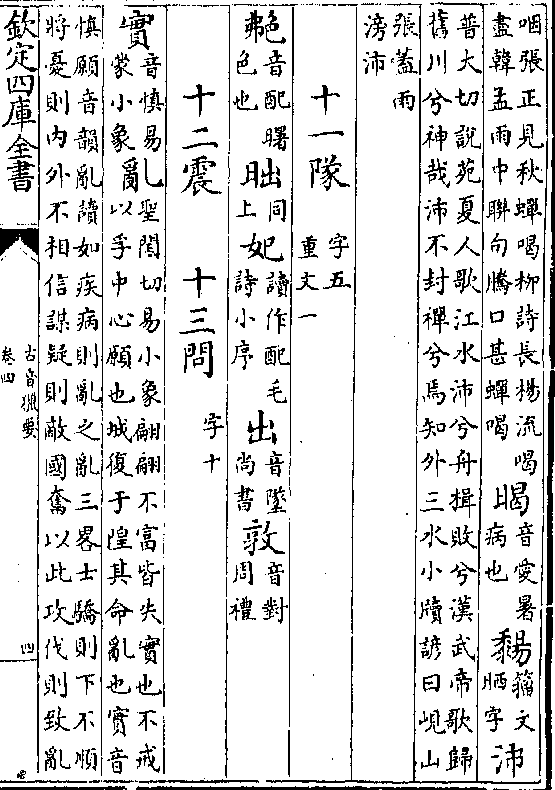 咽張正見秋蟬喝柳詩長楊流喝
盡韓孟雨中聯句騰口甚蟬喝
暍音愛暑
病也
籀文
晒字
沛
普大切說苑夏人歌江水沛兮舟楫敗兮漢武帝歌歸
舊川兮神哉沛不封禪兮焉知外三水小牘諺曰峴山
張蓋雨
滂沛
十一隊 字五
重文一
艴音配曙
色也
昢同
上
妃讀作配毛
詩小序
出音墜
尚書
敦音對
周禮
十二震 十三問 字十
實音慎易
蒙小象
亂聖閏切易小象翩翩不富皆失實也不戒
以孚中心願也城復于隍其命亂也實音
慎願音韻亂讀如疾病則亂之亂三畧士驕則下不順
將憂則内外不相信謀疑則敵國奮以此攻伐則致亂
欽定四庫全書
古音獵要
卷四
四